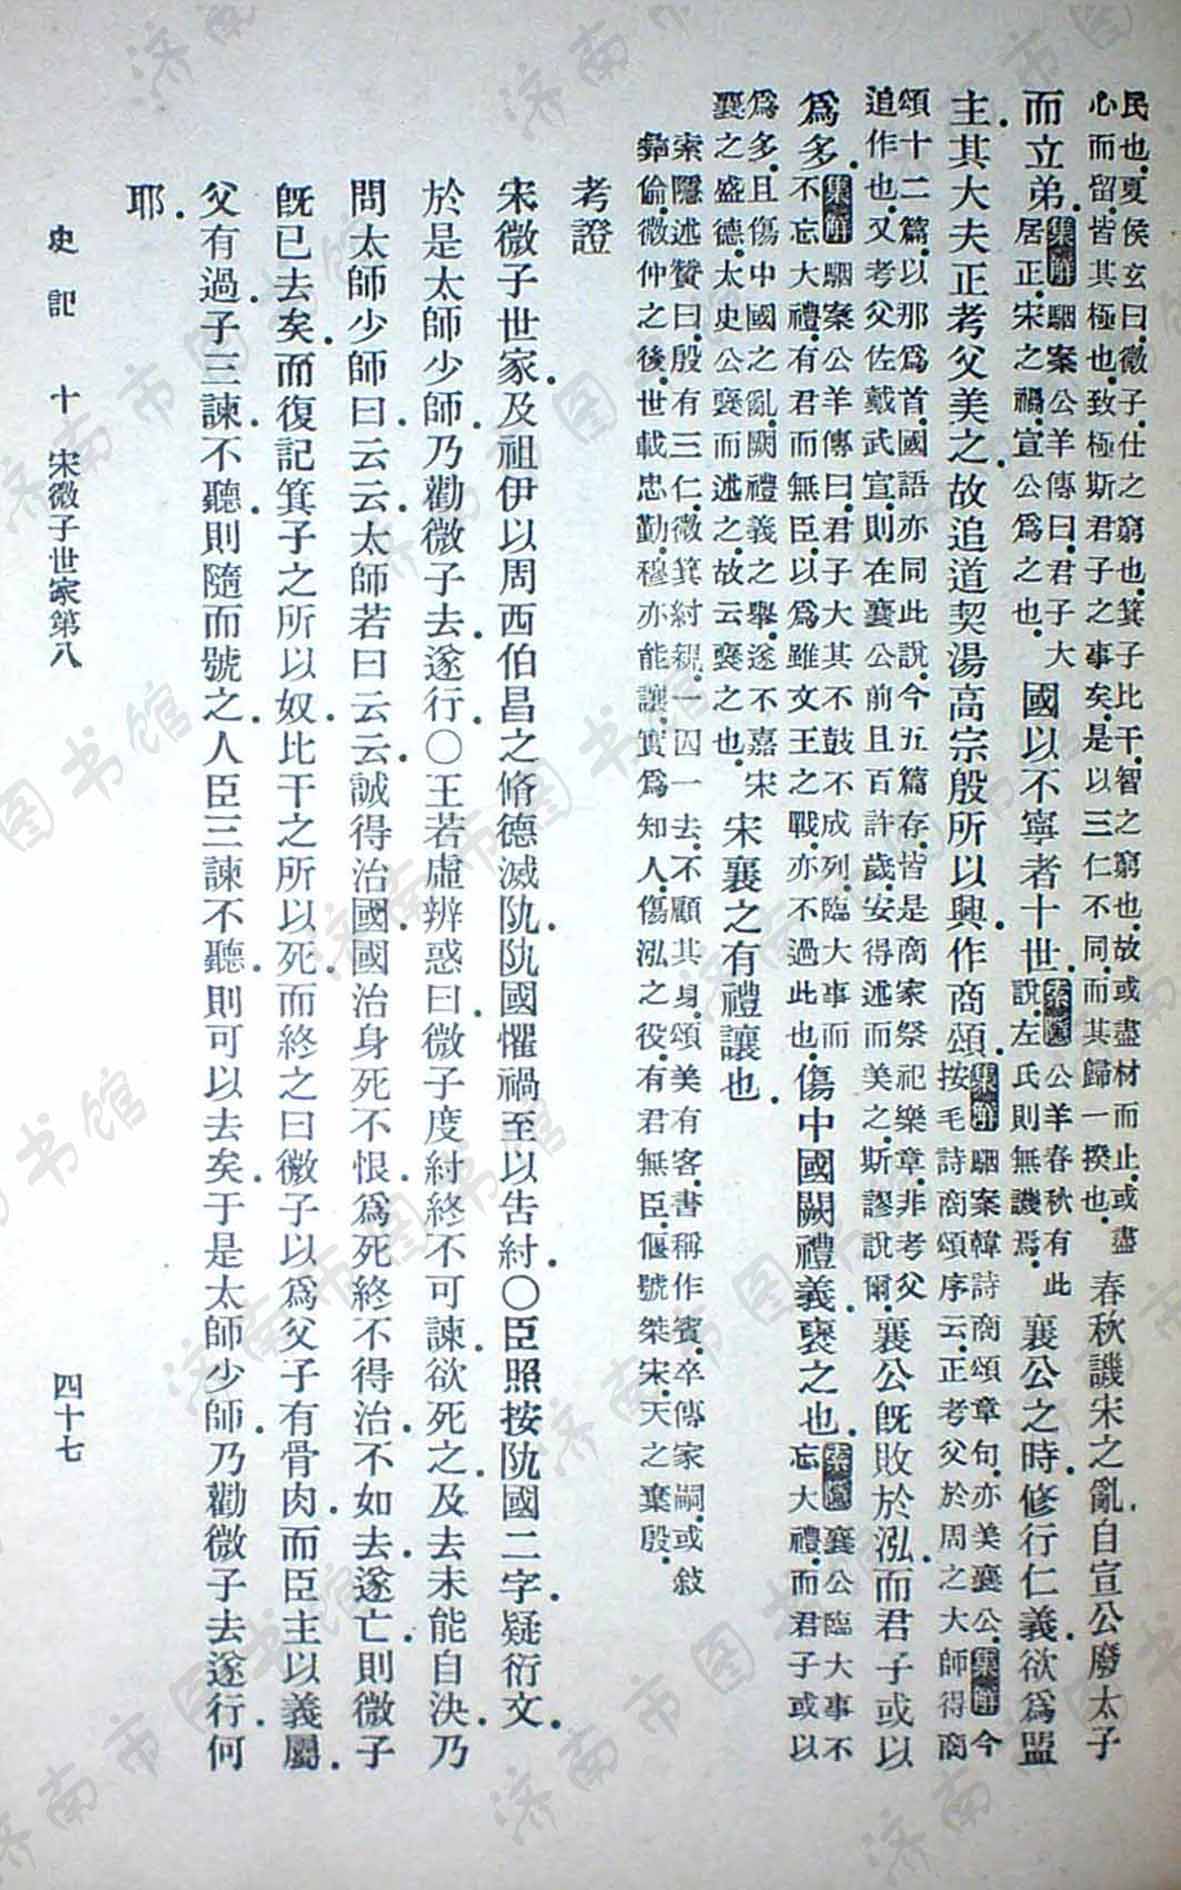 民也。夏侯玄曰。微子。仕之窮也。箕子比干。智之窮也。故或盡材而止。或盡心而留。皆其極也。致極斯君子之事矣。是以三仁不同。而其歸一揆也。春秋譏宋之亂。自宣公廢太子
而立弟。集解駰案公羊傳曰。君子大居正。宋之禍。宣公爲之也。國以不寧者十世。索隱公羊春秋有此說。左氏則無譏焉。襄公之時。修行仁義。欲爲盟
主。其大夫正考父美之。故追道契湯高宗殷所以興。作商頌。集解駰案韓詩商頌章句。亦美襄公。集解今按毛詩商頌序云。正考父於周之大師得商
頌十二篇。以那爲首。國語亦同此說。今五篇存。皆是商家祭祀樂章。非考父追作也。又考父佐戴武宣。則在襄公前且百許歲。安得述而美之。斯謬說爾。襄公既敗於泓。而君子或以
爲多。集解駰案公羊傳曰。君子大其不鼓不成列。臨大事而不忘大禮。有君而無臣。以爲雖文王之戰。亦不過此也。傷中國闕禮義。褒之也。索隱襄公臨大事不忘大禮。而君子或以
爲多。且傷中國之亂。闕禮義之舉。遂不嘉宋襄之盛德。太史公褒而述之。故云褒之也。宋襄之有禮讓也。
索隱述贊曰。殷有三仁。微箕紂親。一囚一去。不顧其身。頌美有客。書稱作賓。卒傳家嗣。或敍彝倫。微仲之後。世載忠勤。穆亦能讓。實爲知人。傷泓之役。有君無臣。偃號桀宋。天之棄殷。
考證
宋微子世家。及祖伊以周西伯昌之脩德滅阢。阢國懼禍至以告紂。〇臣照按阢國二字。疑衍文。
於是太師少師。乃勸微子去。遂行。〇王若虛辨惑曰。微子度紂終不可諫。欲死之。及去未能自決。乃
問太師少師曰。云云。太師若曰云云。誠得治國。國治身死不恨。爲死終不得治。不如去。遂亡。則微子
既已去矣。而復記箕子之所以奴。比干之所以死。而終之曰微子以爲父子有骨肉。而臣主以義屬。
父有過。子三諫。不聽。則隨而號之。人臣三諫不聽。則可以去矣。于是太師少師。乃勸微子去遂行。何
耶。
史記 十 宋微子世家第八 四十七
济南市图书馆